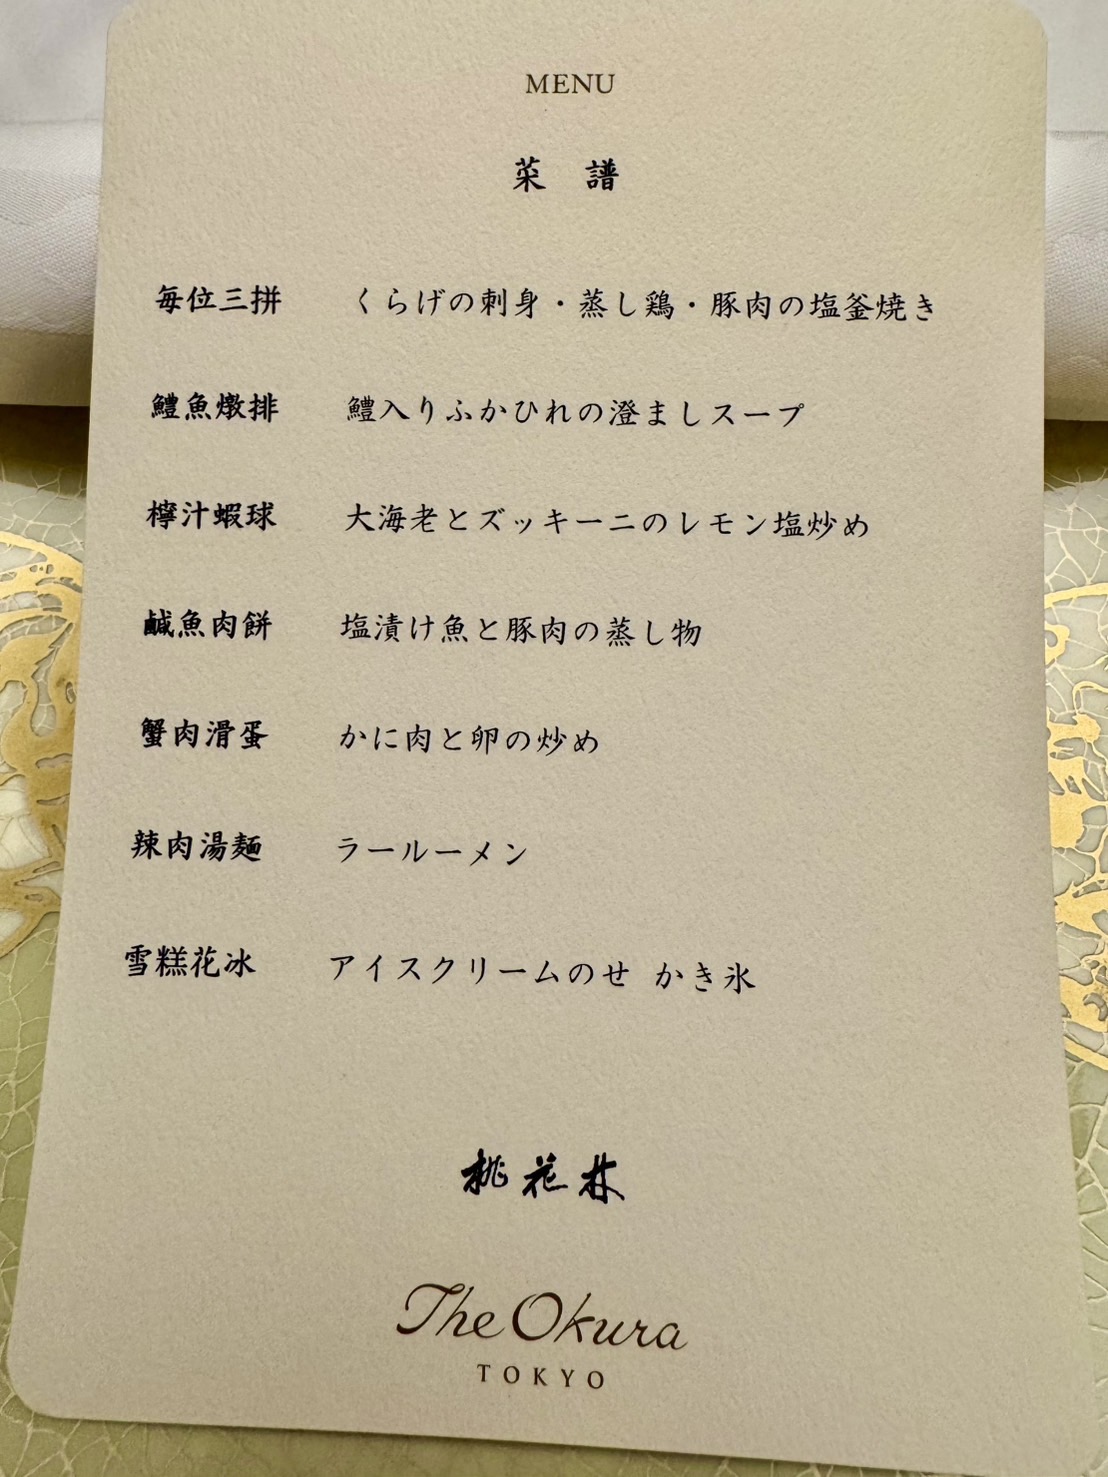 MENU
菜 譜
毎位三拼 くらげの刺身・蒸し鶏・豚肉の塩釜焼き
鱧魚燉排 鱧入りふかひれの澄ましスープ
檸汁蝦球 大海老とズッキーニのレモン塩炒め
鹹魚肉餅 塩漬け魚と豚肉の蒸し物
蟹肉滑蛋 かに肉と卵の炒め
辣肉湯麺 ラールーメン
雪糕花冰 アイスクリームのせ かき氷
桃花林
The Okura
TOKYO